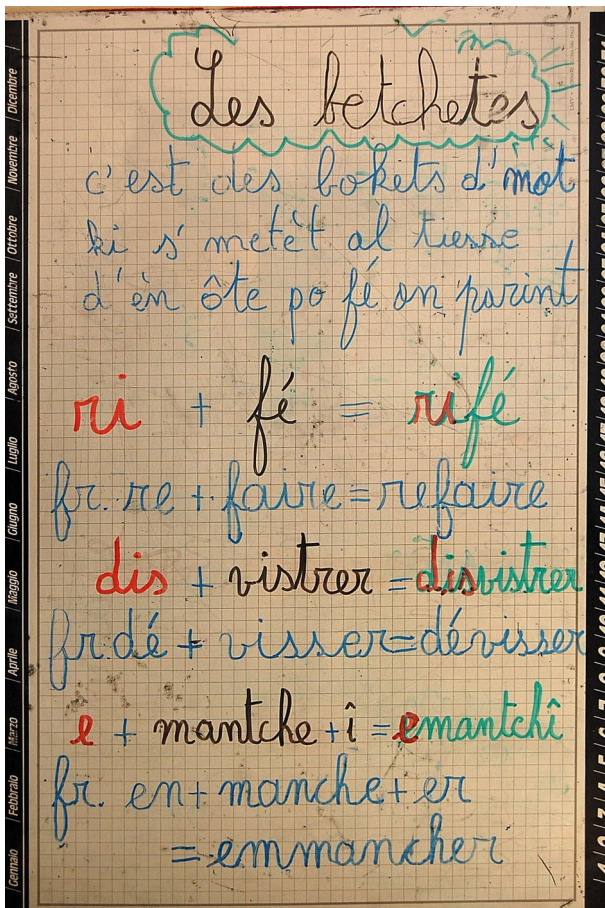 Les betchetes
c'est des bokets d'mot
ki s' metèt al tiesse
d'èn ôte po fé on parint
ri + fé = rifé
fr. re + faire = refaire
dis + vistrer = disvistrer
fr. dé + visser = dévisser
e + mantche + î = emantchî
fr. en + manche + er
= emmancher
Dicembre
Novembre
Ottobre
Settembre
Agosto
Luglio
Giugno
Maggio
Aprile
Marzo
Febbraio
Gennaio